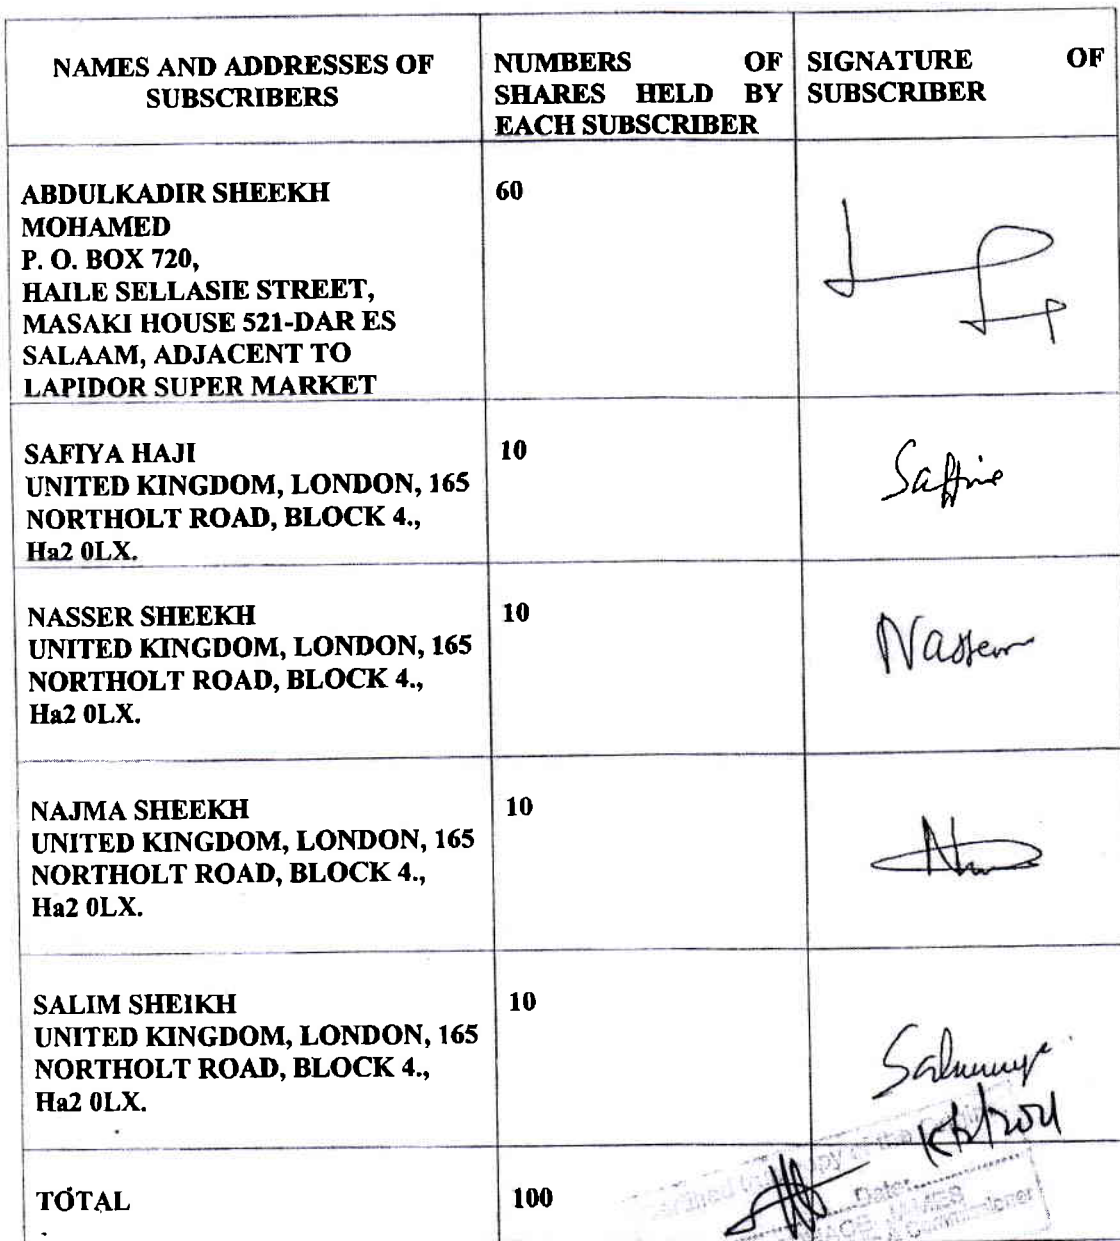 NAMES AND ADDRESSES OF
SUBSCRIBERS
NUMBERS OF
SHARES HELD BY
EACH SUBSCRIBER
SIGNATURE OF
SUBSCRIBER
ABDULKADIR SHEEKH
MOHAMED
P. O. BOX 720,
HAILE SELLASIE STREET,
MASAKI HOUSE 521-DAR ES
SALAAM, ADJACENT TO
LAPIDOR SUPER MARKET
60
SAFIYA HAJI
UNITED KINGDOM, LONDON, 165
NORTHOLT ROAD, BLOCK 4.,
Ha2 0LX.
10
NASSER SHEEKH
UNITED KINGDOM, LONDON, 165
NORTHOLT ROAD, BLOCK 4.,
Ha2 0LX.
10
Nasser
NAJMA SHEEKH
UNITED KINGDOM, LONDON, 165
NORTHOLT ROAD, BLOCK 4.,
Ha2 0LX.
10
SALIM SHEIKH
UNITED KINGDOM, LONDON, 165
NORTHOLT ROAD, BLOCK 4.,
Ha2 0LX.
10
TOTAL
100
copy of the
Date:
JAMES
& Commissioner